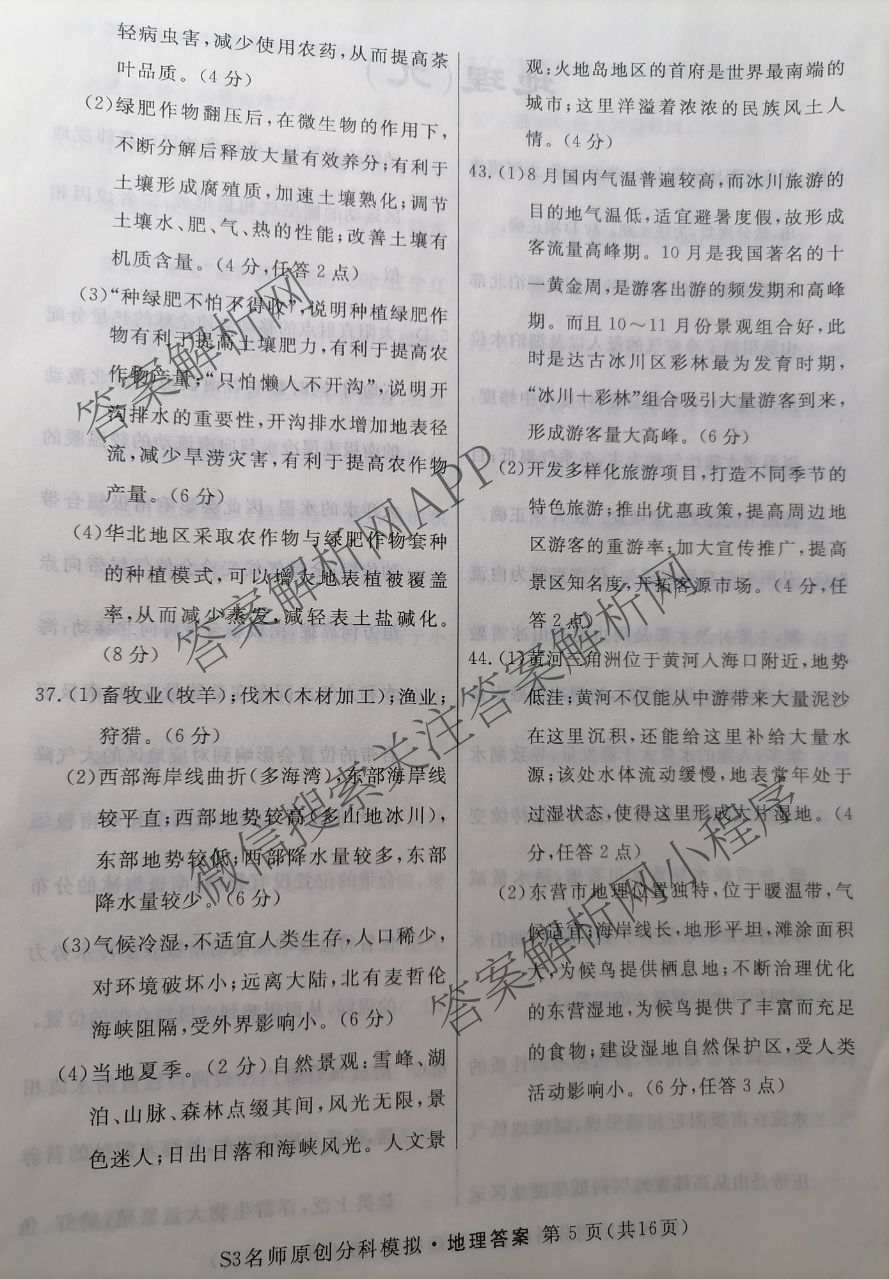 轻病虫害,减少使用农药,从而提高茶
叶品质。(4分)
(2)绿肥作物翻压后,在微生物的作用下,
不断分解后释放大量有效养分;有利于
土壤形成腐殖质,加速土壤熟化;调节
土壤水、肥、气、热的性能;改善土壤有
机质含量。(4分,任答2点)
(3)“种绿肥不怕不得收”,说明种植绿肥作
物有利于提高土壤肥力,有利于提高农
作物产量;“只怕懒人不开沟”,说明开
沟排水的重要性,开沟排水增加地表径
流,减少旱涝灾害,有利于提高农作物
产量。(6分)
(4)华北地区采取农作物与绿肥作物套种
的种植模式,可以增大地表植被覆盖
率,从而减少蒸发,减轻表土盐碱化。
(8分)
37.(1)畜牧业(牧羊);伐木(木材加工);渔业;
狩猎。(6分)
(2)西部海岸线曲折(多海湾),东部海岸线
较平直;西部地势较高(多山地冰川),
东部地势较低;西部降水量较多,东部
降水量较少。(6分)
(3)气候冷湿,不适宜人类生存,人口稀少,
对环境破坏小;远离大陆,北有麦哲伦
海峡阻隔,受外界影响小。(6分)
(4)当地夏季。(2分)自然景观:雪峰、湖
泊、山脉、森林点缀其间,风光无限,景
色迷人;日出日落和海峡风光。人文景
观:火地岛地区的首府是世界最南端的
城市;这里洋溢着浓浓的民族风土人
情。(4分)
43.(1)8月国内气温普遍较高,而冰川旅游的
目的地气温低,适宜避暑度假,故形成
客流量高峰期。10月是我国著名的十
一黄金周,是游客出游的频发期和高峰
期。而且10～11月份景观组合好,此
时是达古冰川区彩林最为发育时期,
“冰川+彩林”组合吸引大量游客到来,
形成游客量大高峰。(6分)
(2)开发多样化旅游项目,打造不同季节的
特色旅游;推出优惠政策,提高周边地
区游客的重游率;加大宣传推广,提高
景区知名度,开拓客源市场。(4分,任
答2点)
44.(1)黄河三角洲位于黄河入海口附近,地势
低洼;黄河不仅能从中游带来大量泥沙
在这里沉积,还能给这里补给大量水
源;该处水体流动缓慢,地表常年处于
过湿状态,使得这里形成大片湿地。(4
分,任答2点)
(2)东营市地理位置独特,位于暖温带,气
候适宜;海岸线长,地形平坦,滩涂面积
大,为候鸟提供栖息地;不断治理优化
的东营湿地,为候鸟提供了丰富而充足
的食物;建设湿地自然保护区,受人类
活动影响小。(6分,任答3点)
S3名师原创分科模拟·地理答案 第5页(共16页)
答案解析网
答案解析网APP
微信搜索关注答案解析网
答案解析网小程序